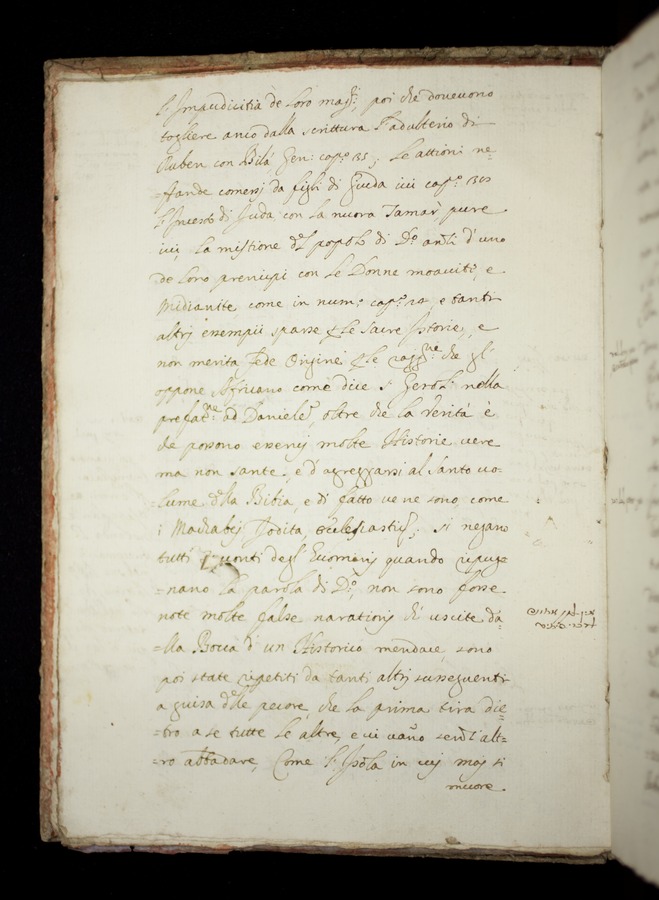 l'Impudicitia de loro magi; poi che dovevono
togliere anco dalla scrittura l'adulterio di
Ruben con Bila, Gen: cap.º 35; le attioni ne=
=fande comessi da figli di Giuda ivi cap.º 38
l'Incesto di Juda con la nuora Tamar, pure
ivi, la mistione del popolo di D.º d'uno
de loro prencipi con le Donne moavite, e
Midianite come in num.º cap.º e tanti
altri essempii sparse le sacre Istorie, e
non merita fede Origine che gl'
oppone Africano come dice S. Gerol: nella
prefat.ne ad Daniele, oltre che la verità è
che possono esservi molte Historie vere
ma non sante, e d'agreggarsi al Santo vo=
=lume della Bibia, e di fatto ve ne sono, come
i Machabej Jodita, Ecclesiastic; si negano
tutti degl' quando repuge
=nano la parola di D.º, non sono forse
note molte false narationj ch' uscite da=
=lla Bocca d' un Historico mendace, sono
poi state repetiti da tanti altrj susseguenti
a guisa delle pecore, che la prima tira die=
=tro a se tutte le altre, e vi vano senz' alt=
=ro abbadare, Come l'Isola in cui maj si
muore.